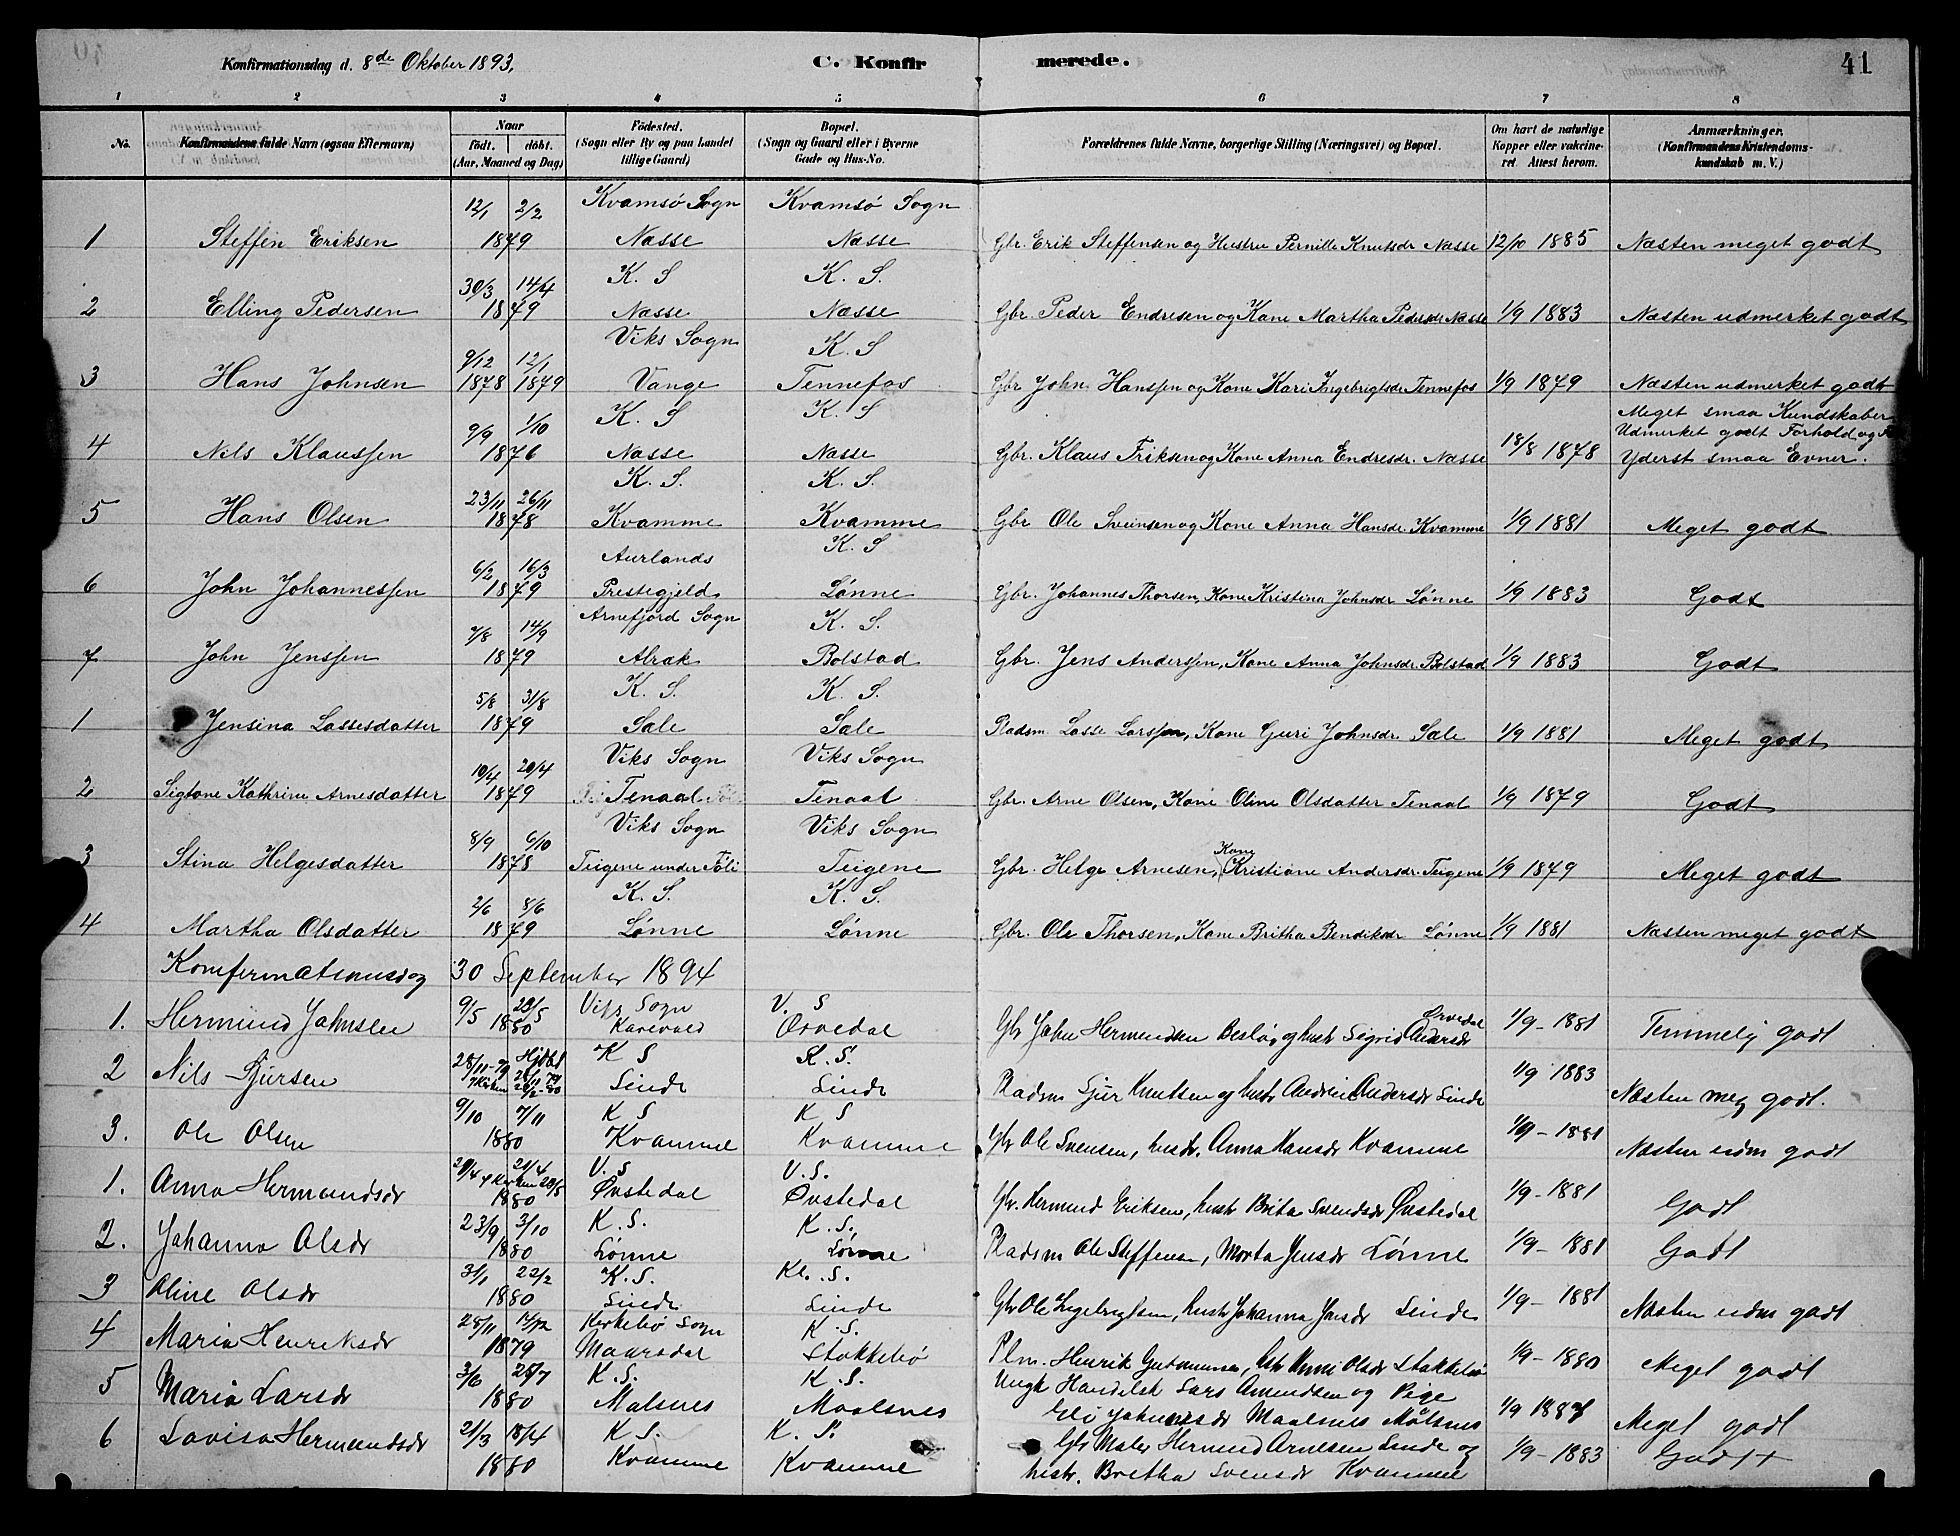 Konfirmationsdag d. 8de Oktober 1893. C. Konfirmerede. 41
1 2 3 4 5 6 7 8
No. Konfirmandens fulde Navn (ogsaa Efternavn) Naar födt. döbt. (Aar, Maaned og Dag) Födested. (Sogn eller By og paa Landet tillige Gaard) Bopæl. (Sogn og Gaard eller i Byerne Gade og Hus-No. Forældrenes fulde Navne, borgerlige Stilling (Næringsvei) og Bopæl. Om havt de naturlige Kopper eller vakcineret. Attest herom. Anmærkninger. (Konfirmandens Kristendomskundskab m. V.)
12/1 2/2 Kvamsö Sogn Kvamsö Sogn
1 Steffen Eriksen 1879 Næsse Næsse Gbr. Erik Steffensen og Hustru Pernille Knutsdr Næsse 12/10 1885 Næsten meget godt
30/3 14/4 K. S K. S.
2 Elling Pedersen 1879 Næsse Næsse Gbr. Peder Endresen og Kone Martha Pedersdr Næsse 1/9 1883 Næsten udmerket godt
9/12 12/1 Viks Sogn K. S
3 Hans Johnsen 1878 1879 Vange Tennefos Gbr John Hanssen og Kone Kari Ingebrigtsdr Tennefos 1/9 1879 Næsten udmerket godt
9/9 1/10 K. S K. S Meget smaa Kundskaber
4 Nils Klaussen 1876 Næsse Næsse Gbr. Klaus Eriksen og Kone Anna Endresdr. Næsse 18/8 1878 Udmerket godt Forhold og
Yderst smaa Evner.
23/11 26/11 K. S. K. S.
5 Hans Olsen 1878 Kvamme Kvamme Gbr Ole Sveinsen og Kone Anna Hansdr Kvamme 1/9 1881 Meget godt
6/2 16/3 Aurlands K. S
6 John Johannessen 1879 Prestegjeld Lönne Gbr. Johannes Thorsen, Kone Kristina Johnsdr Lönne 1/9 1883 Godt
7/8 14/9 Arnefjord Sogn K. S.
7 John Jenssen 1879 Alrek Bolstad Gbr. Jens Anderssen, Kone Anna Johnsdr. Bolstad 1/9 1883 Godt
5/8 31/8 K. S. K. S.
1 Jensina Lassesdatter 1879 Sale Sale Pladsm. Lasse Larssen, Kone Guri Johnsdr. Sale 1/9 1881 Meget godt
10/4 20/4 Viks Sogn Viks Sogn
2 Sigtone Kathrine Arnesdatter 1879 Tenaal Tenaal Gbr. Arne Olsen, Kone Oline Olsdatter Tenaal 1/9 1879 Godt
8/9 6/10 Viks Sogn Viks Sogn
3 Stina Helgesdatter 1878 Teigene under Föli Teigene Gbr. Helge Arnesen, Kone Kristiane Andersdr. Teigene 1/9 1879 Meget godt
2/6 8/6 K. S. K. S.
4 Martha Olsdatter 1879 Lönne Lönne Gbr. Ole Thorsen, Kone Britha Bendiksdr Lönne 1/9 1881 Næsten meget godt
Komfermationsdag 30 September 1894
1. Hermund Johnsen 9/5 23/5 1880 Vigs Sogn V. S Orvedal Gbr John Hermundsen og hust Sigrid Andersdr Orvedal 1/9 - 1881 Temmelig godt
2 Nils Sjursen 28/11-79 Hjdbt K S Sinde K. S. Sinde Pladsm Sjur Knutsen og hustr Andersdr Sinde 1/9 1883 Næsten meg godt.
3. Ole Olsen 9/10 7/11 1880 K S Kvamme K S Kvamme Gbr Ole Svensen, hustr. Anna Hansdr Kvamme 1/9 - 1881 Næsten udm godt
1. Anna Hermundsdr 20/4 21/4 1880 V. S Övstedal V. S. Övstedal Gbr. Hermund Eriksen, hustr Brita Svendsdr Övstedal 1/9 - 1881 Godt
2. Johanna Olsdr 23/9 3/10 1880 K. S. Lönne K. S. Lönne Pladsm Ole Steffensen, Marta Jensdr Lönne 1/9 - 1881 Godt
3 Oline Olsdr 31/1 22/2 1880 K. S. Sinde K. S. Sinde Gbr Ole Ingebrigtsen, hustr Johanna Jonsdr Sinde 1/9 - 1881 Næsten udm godt
4 Maria Henriksdr 28/11 14/12 1879 Kirkebö Sogn Maarsdal K. S. Stokkebö Plm. Henrik Olsdr Stokkebö 1/9 - 1880 Meget godt
5 Maria Larsdr 3/6 25/7 1880 K. S. Malsnes K. S. Maalsnes Ungk Handelsk Lars Amundsen og Pige
Eli Johannesdr Maalsnes Målsnes 1/9 1887 Meget godt
6 Lovisa Hermundsdr 21/3 18/4 1880 K S. Kvamme K. S. Kvamme Gbr Maler Hermund Arnesen Sinde og
hustr. Bretha Svensdr Kvamme 1/9 - 1883 Godt